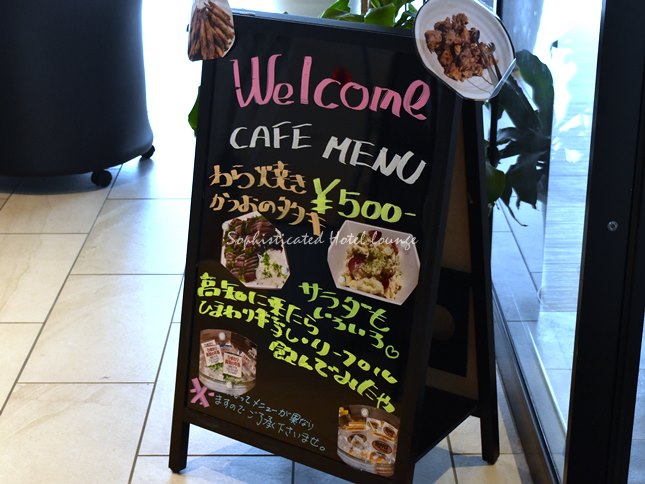 Welcome
CAFE MENU
わら焼き
かつおのタタキ
¥500-
Sophisticated Hotel lounge
サラダも
いろいろ
高知に来たら
ひまわり牛乳
リープル
飲んでみたや
ってメニューが異なり
ますのでご了承下さいませ。